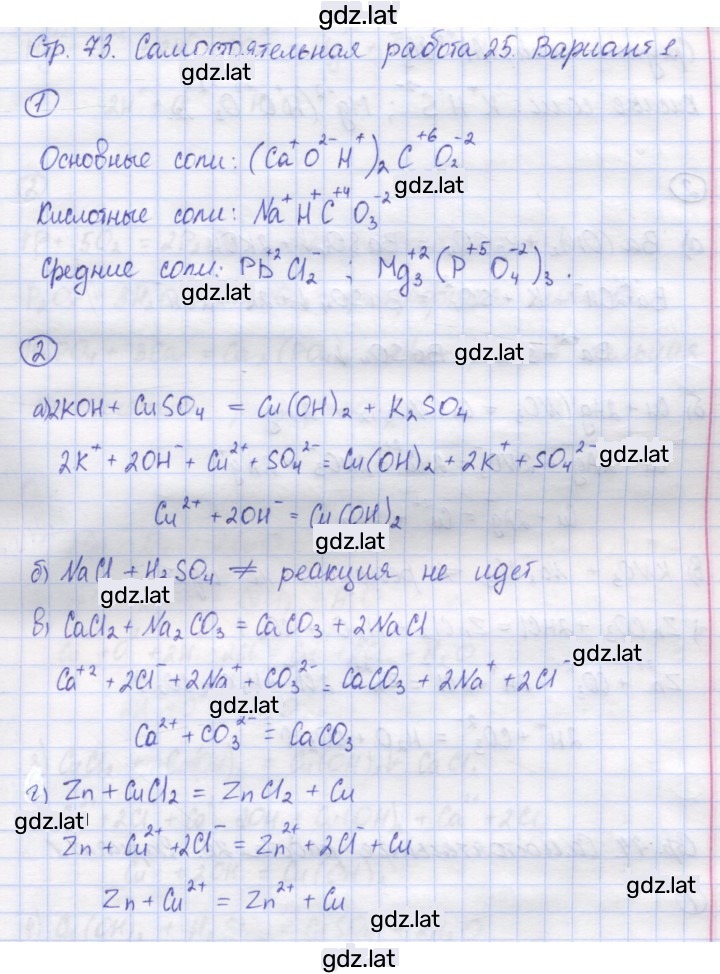 gdz.lat
Стр. 73. Самостоятельная работа 25. Вариант 1.
gdz.lat
1
Основные соли: (Ca⁺O²⁻H⁺)₂C⁺⁶O₂⁻²
gdz.lat
Кислотные соли: Na⁺H⁺C⁺⁴O₃⁻²
Средние соли: Pb⁺²Cl₂⁻ ; Mg₃⁺²(P⁺⁵O₄⁻²)₃.
gdz.lat
2
gdz.lat
а) 2KOH + CuSO₄ = Cu(OH)₂ + K₂SO₄
2K⁺ + 2OH⁻ + Cu²⁺ + SO₄²⁻ = Cu(OH)₂ + 2K⁺ + SO₄²⁻
gdz.lat
Cu²⁺ + 2OH⁻ = Cu(OH)₂
gdz.lat
б) NaCl + H₂SO₄ ≠ реакция не идет
gdz.lat
в) CaCl₂ + Na₂CO₃ = CaCO₃ + 2NaCl
gdz.lat
Ca⁺² + 2Cl⁻ + 2Na⁺ + CO₃²⁻ = CaCO₃ + 2Na⁺ + 2Cl⁻
gdz.lat
Ca²⁺ + CO₃²⁻ = CaCO₃
г) Zn + CuCl₂ = ZnCl₂ + Cu
gdz.lat
Zn + Cu²⁺ + 2Cl⁻ = Zn²⁺ + 2Cl⁻ + Cu
gdz.lat
Zn + Cu²⁺ = Zn²⁺ + Cu
gdz.lat
gdz.lat